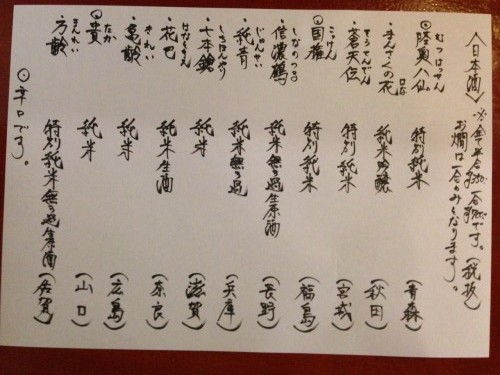 〈日本酒〉 ※全て半合 一合 です。(税抜)
お燗は一合のみとなります。
むつはっせん
◎陸奥八仙 特別純米 (青森)
・まんさくの花 純米吟醸 (秋田)
そうてんでん
・蒼天伝 特別純米 (宮城)
こっけん
◎国権 特別純米 (福島)
しなのつる
・信濃鶴 純米無ろ過生原酒 (長野)
じゅんせい
・純青 純米無ろ過 (兵庫)
しちほんやり
・七本鎗 純米 (滋賀)
・花巴 純米生酒 (奈良)
きれい
・亀齢 純米 (広島)
たか
◎貴 純米 (山口)
まんれい
・万齢 特別純米無ろ過生原酒 (佐賀)
◎辛口です。